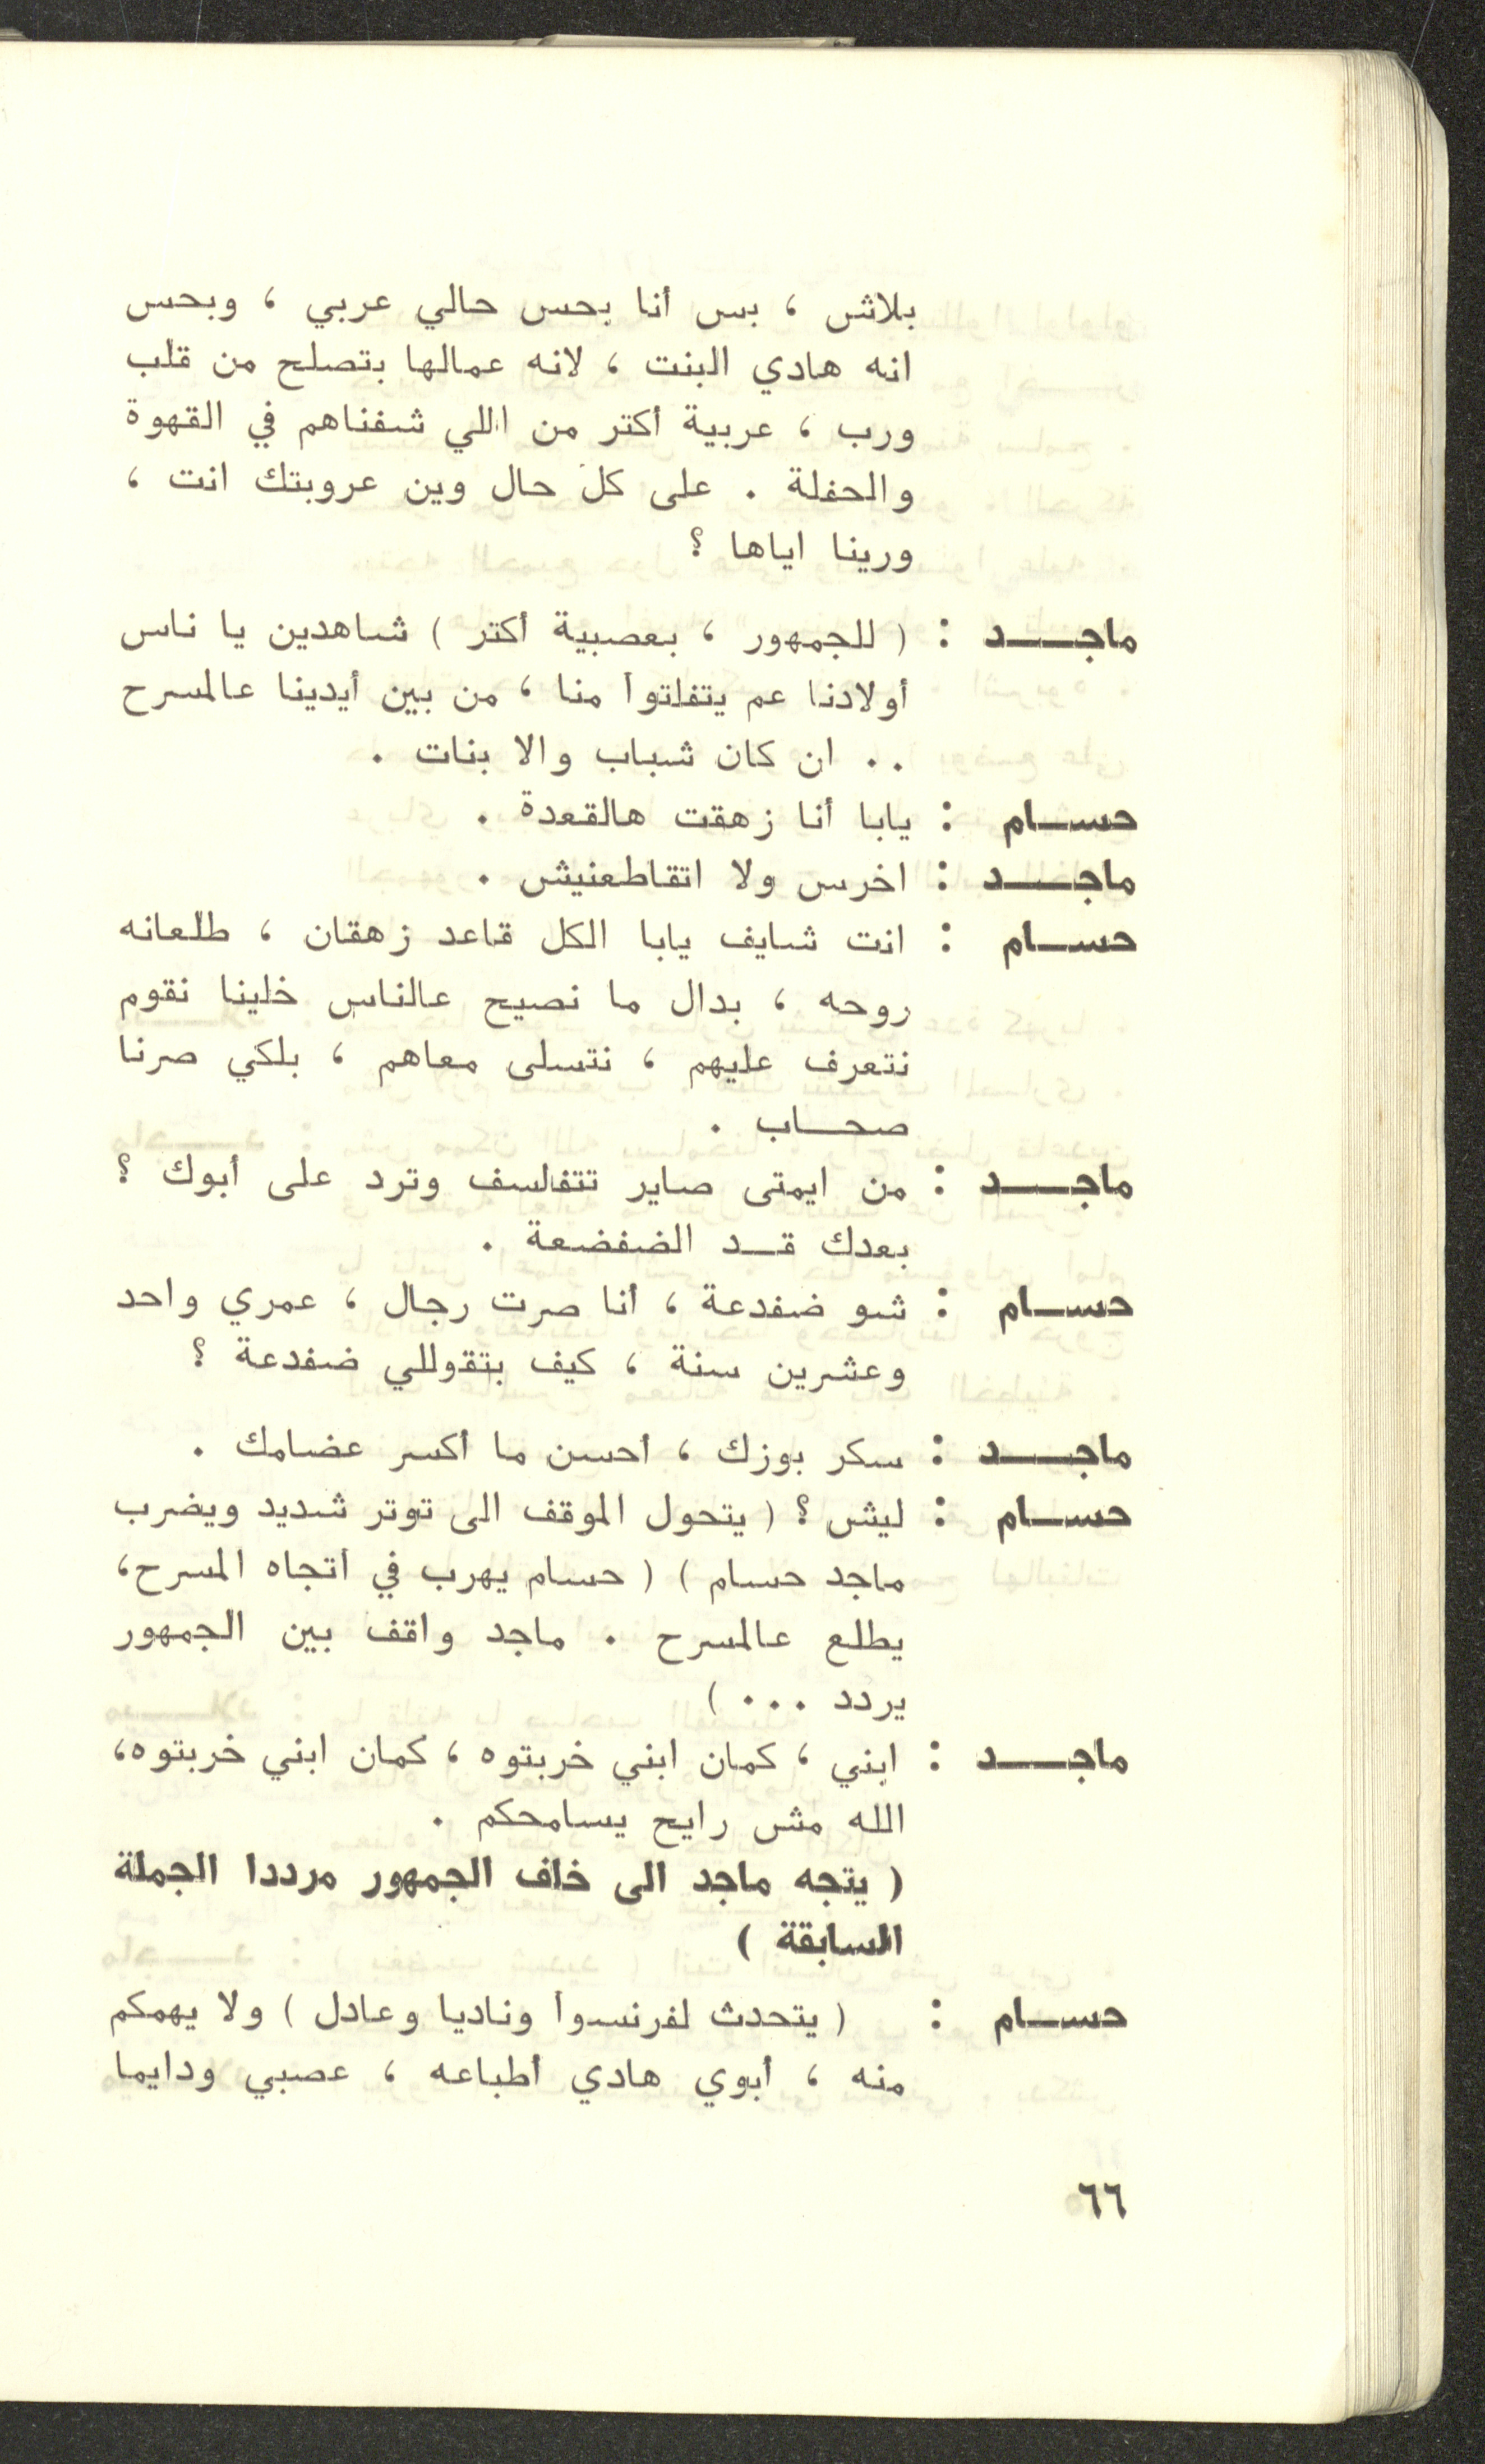 بلاش ، بس أنا بحس حالي عربي ، وبحس
انه هادي البنت ، لانه عمالها بتصلح من قلب
ورب ، عربية أكتر من اللي شفناهم في القهوة
والحفلة . على كل حال وين عروبتك انت ،
ورينا اياها ؟
ماجـــد : ( للجمهور ، بعصبية أكتر ) شاهدين يا ناس
أولادنا عم يتفلتوا منا ، من بين أيدينا عالمسرح
. . ان كان شباب والا بنات .
حســام : يابا أنا زهقت هالقعدة .
ماجـــد : اخرس ولا اتقاطعنيش .
حســام : انت شايف يابا الكل قاعد زهقان ، طلعانه
روحه ، بدال ما نصيح عالناس خلينا نقوم
نتعرف عليهم ، نتسلى معاهم ، بلكي صرنا
صحــاب .
ماجـــد : من ايمتى صاير تتفلسف وترد على أبوك ؟
بعدك قــد الضفضعة .
حســام : شو ضفدعة ، أنا صرت رجال ، عمري واحد
وعشرين سنة ، كيف بتقوللي ضفدعة ؟
ماجـــد : سكر بوزك ، أحسن ما أكسر عضامك .
حســام : ليش ؟ ( يتحول الموقف الى توتر شديد ويضرب
ماجد حسام ) ( حسام يهرب في أتجاه المسرح،
يطلع عالمسرح . ماجد واقف بين الجمهور
يردد . . . )
ماجـــد : ابني ، كمان ابني خربتوه ، كمان ابني خربتوه،
الله مش رايح يسامحكم .
( يتجه ماجد الى خلف الجمهور مرددا الجملة
السابقة )
حســام : ( يتحدث لفرنسوا وناديا وعادل ) ولا يهمكم
منه ، أبوي هادي أطباعه ، عصبي ودايما
٦٦